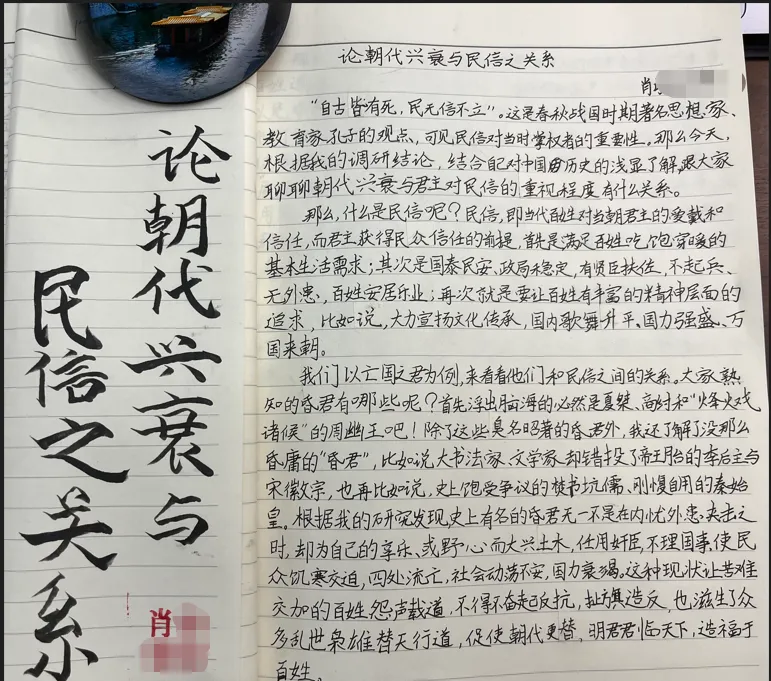 论朝代兴衰与
民信之关系
肖
论朝代兴衰与民信之关系
肖
“自古皆有死，民无信不立”。这是春秋战国时期著名思想家、
教育家孔子的观点，可见民信对当时掌权者的重要性，那么今天，
根据我的调研结论，结合自己对中国历史的浅显了解，跟大家
聊聊朝代兴衰与君主对民信的重视程度有什么关系。
那么，什么是民信呢？民信，即当代百姓对当朝君主的爱戴和
信任，而君主获得民众信任的前提，首先是满足百姓吃饱穿暖的
基本生活需求；其次是国泰民安、政局稳定，有贤臣扶佐，不起兵、
无外患，百姓安居乐业；再次就是要让百姓有丰富的精神层面的
追求，比如说，大力宣扬文化传承，国内歌舞升平、国力强盛、万
国来朝。
我们以亡国之君为例，来看看他们和民信之间的关系。大家熟
知的昏君有哪些呢？首先浮出脑海的必然是夏桀、商纣和“烽火戏
诸侯”的周幽王吧！除了这些臭名昭著的昏君外，我还了解了没那么
昏庸的“昏君”，比如说大书法家、文学家却错投了帝王胎的李后主与
宋徽宗，也再比如说，史上饱受争议的焚书坑儒、刚愎自用的秦始
皇。根据我的研究发现，史上有名的昏君无一不是在内忧外患、夹击之
时，却为自己的享乐、或野心而大兴土木，任用奸臣，不理国事，使民
众饥寒交迫，四处流亡，社会动荡不安，国力衰竭。这种现状让苦难
交加的百姓怨声载道，不得不奋起反抗，扯旗造反，也滋生了众
多乱世枭雄替天行道，促使朝代更替，明君君临天下，造福于
百姓。